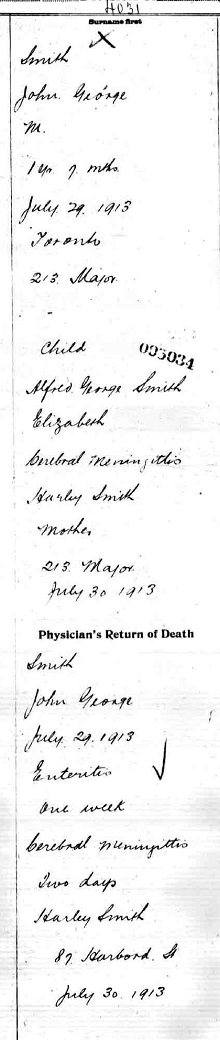 4031
Surname first
X
Smith
John George
M.
1 yr. 9. mths.
July 29. 1913
Toronto
213 Major
Child
005034
Alfred George Smith
Elizabeth
Cerebral Meningitis
Harley Smith
Mother
213 Major
July 30 1913
Physician's Return of Death
Smith
John George
July 29. 1913
Enteritis
One week
Cerebral Meningitis
Two days
Harley Smith
87 Harbord St
July 30 1913